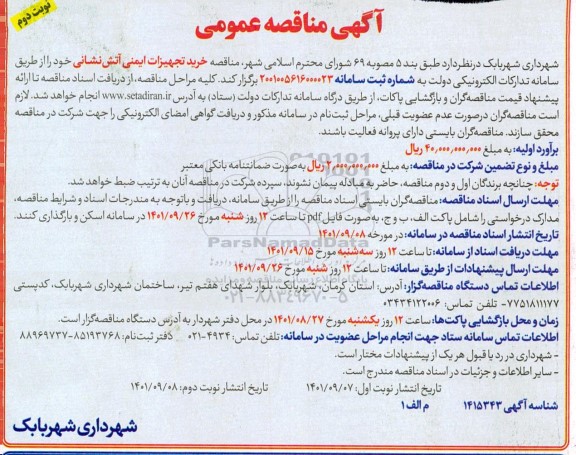 نوبت دوم
آگهی مناقصه عمومی
شهرداری شهربابک درنظردارد طبق بند ۵ مصوبه ۶۹ شورای محترم اسلامی شهر، مناقصه خرید تجهیزات ایمنی آتش‌نشانی خود را از طریق
سامانه تدارکات الکترونیکی دولت به شماره ثبت سامانه ۲۰۰۱۰۰۵۶۱۶۰۰۰۰۲۳ برگزار کند. کلیه مراحل مناقصه، از دریافت اسناد مناقصه تا ارائه
پیشنهاد قیمت مناقصه‌گران و بازگشایی پاکات، از طریق درگاه سامانه تدارکات دولت (ستاد) به آدرس www.setadiran.ir انجام خواهد شد. لازم
است مناقصه‌گران درصورت عدم عضویت قبلی، مراحل ثبت‌نام در سامانه مذکور و دریافت گواهی امضای الکترونیکی را جهت شرکت در مناقصه
محقق سازند. مناقصه‌گران بایستی دارای پروانه فعالیت باشند.
برآورد اولیه: به مبلغ ۴۰,۰۰۰,۰۰۰,۰۰۰ ریال
مبلغ و نوع تضمین شرکت در مناقصه: به مبلغ ۲,۰۰۰,۰۰۰,۰۰۰ ریال به‌صورت ضمانتنامه بانکی معتبر
توجه: چنانچه برندگان اول و دوم مناقصه، حاضر به مبادله پیمان نشوند، سپرده شرکت در مناقصه آنان به ترتیب ضبط خواهد شد.
مهلت ارسال اسناد مناقصه: مناقصه‌گران بایستی اسناد مناقصه را از طریق سامانه، دریافت و باتوجه به مندرجات اسناد و شرایط مناقصه،
مدارک درخواستی را شامل پاکت الف، ب و ج، به‌صورت فایل pdf تا ساعت ۱۲ روز شنبه مورخ ۱۴۰۱/۰۹/۲۶ در سامانه اسکن و بارگذاری کنند.
تاریخ انتشار اسناد مناقصه در سامانه: در مورخه ۱۴۰۱/۰۹/۰۸
مهلت دریافت اسناد از سامانه: تا ساعت ۱۲ روز سه‌شنبه مورخ ۱۴۰۱/۰۹/۱۵
مهلت ارسال پیشنهادات از طریق سامانه: تا ساعت ۱۲ روز شنبه مورخ ۱۴۰۱/۰۹/۲۶
اطلاعات تماس دستگاه مناقصه‌گزار: آدرس: استان کرمان، شهربابک، بلوار شهدای هفتم تیر، ساختمان شهرداری شهربابک، کدپستی
۷۷۵۱۸۱۱۱۷۷- تلفن تماس: ۰۳۴۳۴۱۲۲۰۰۶
زمان و محل بازگشایی پاکت‌ها: ساعت ۱۲ روز یکشنبه مورخ ۱۴۰۱/۰۸/۲۷ در محل دفتر شهردار به آدرس دستگاه مناقصه‌گزار است.
اطلاعات تماس سامانه ستاد جهت انجام مراحل عضویت در سامانه: تلفن تماس: ۴۹۳۴-۰۲۱ دفتر ثبت‌نام: ۸۵۱۹۳۷۶۸-۸۸۹۶۹۷۳۷
- شهرداری در رد یا قبول هر یک از پیشنهادات مختار است.
- سایر اطلاعات و جزئیات در اسناد مناقصه مندرج است.
تاریخ انتشار نوبت اول: ۱۴۰۱/۰۹/۰۷ تاریخ انتشار نوبت دوم: ۱۴۰۱/۰۹/۰۸
شناسه آگهی ۱۴۱۵۳۴۳ م الف ۱
شهرداری شهربابک
ParsNamadData
۰۲۱-۸۸۳۴۹۶۷۰-۵